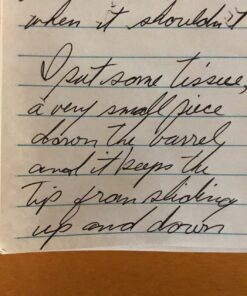 when it shouldn't
I put some tissue,
a very small piece
down the barrel
and it keeps the
tip from sliding
up and down